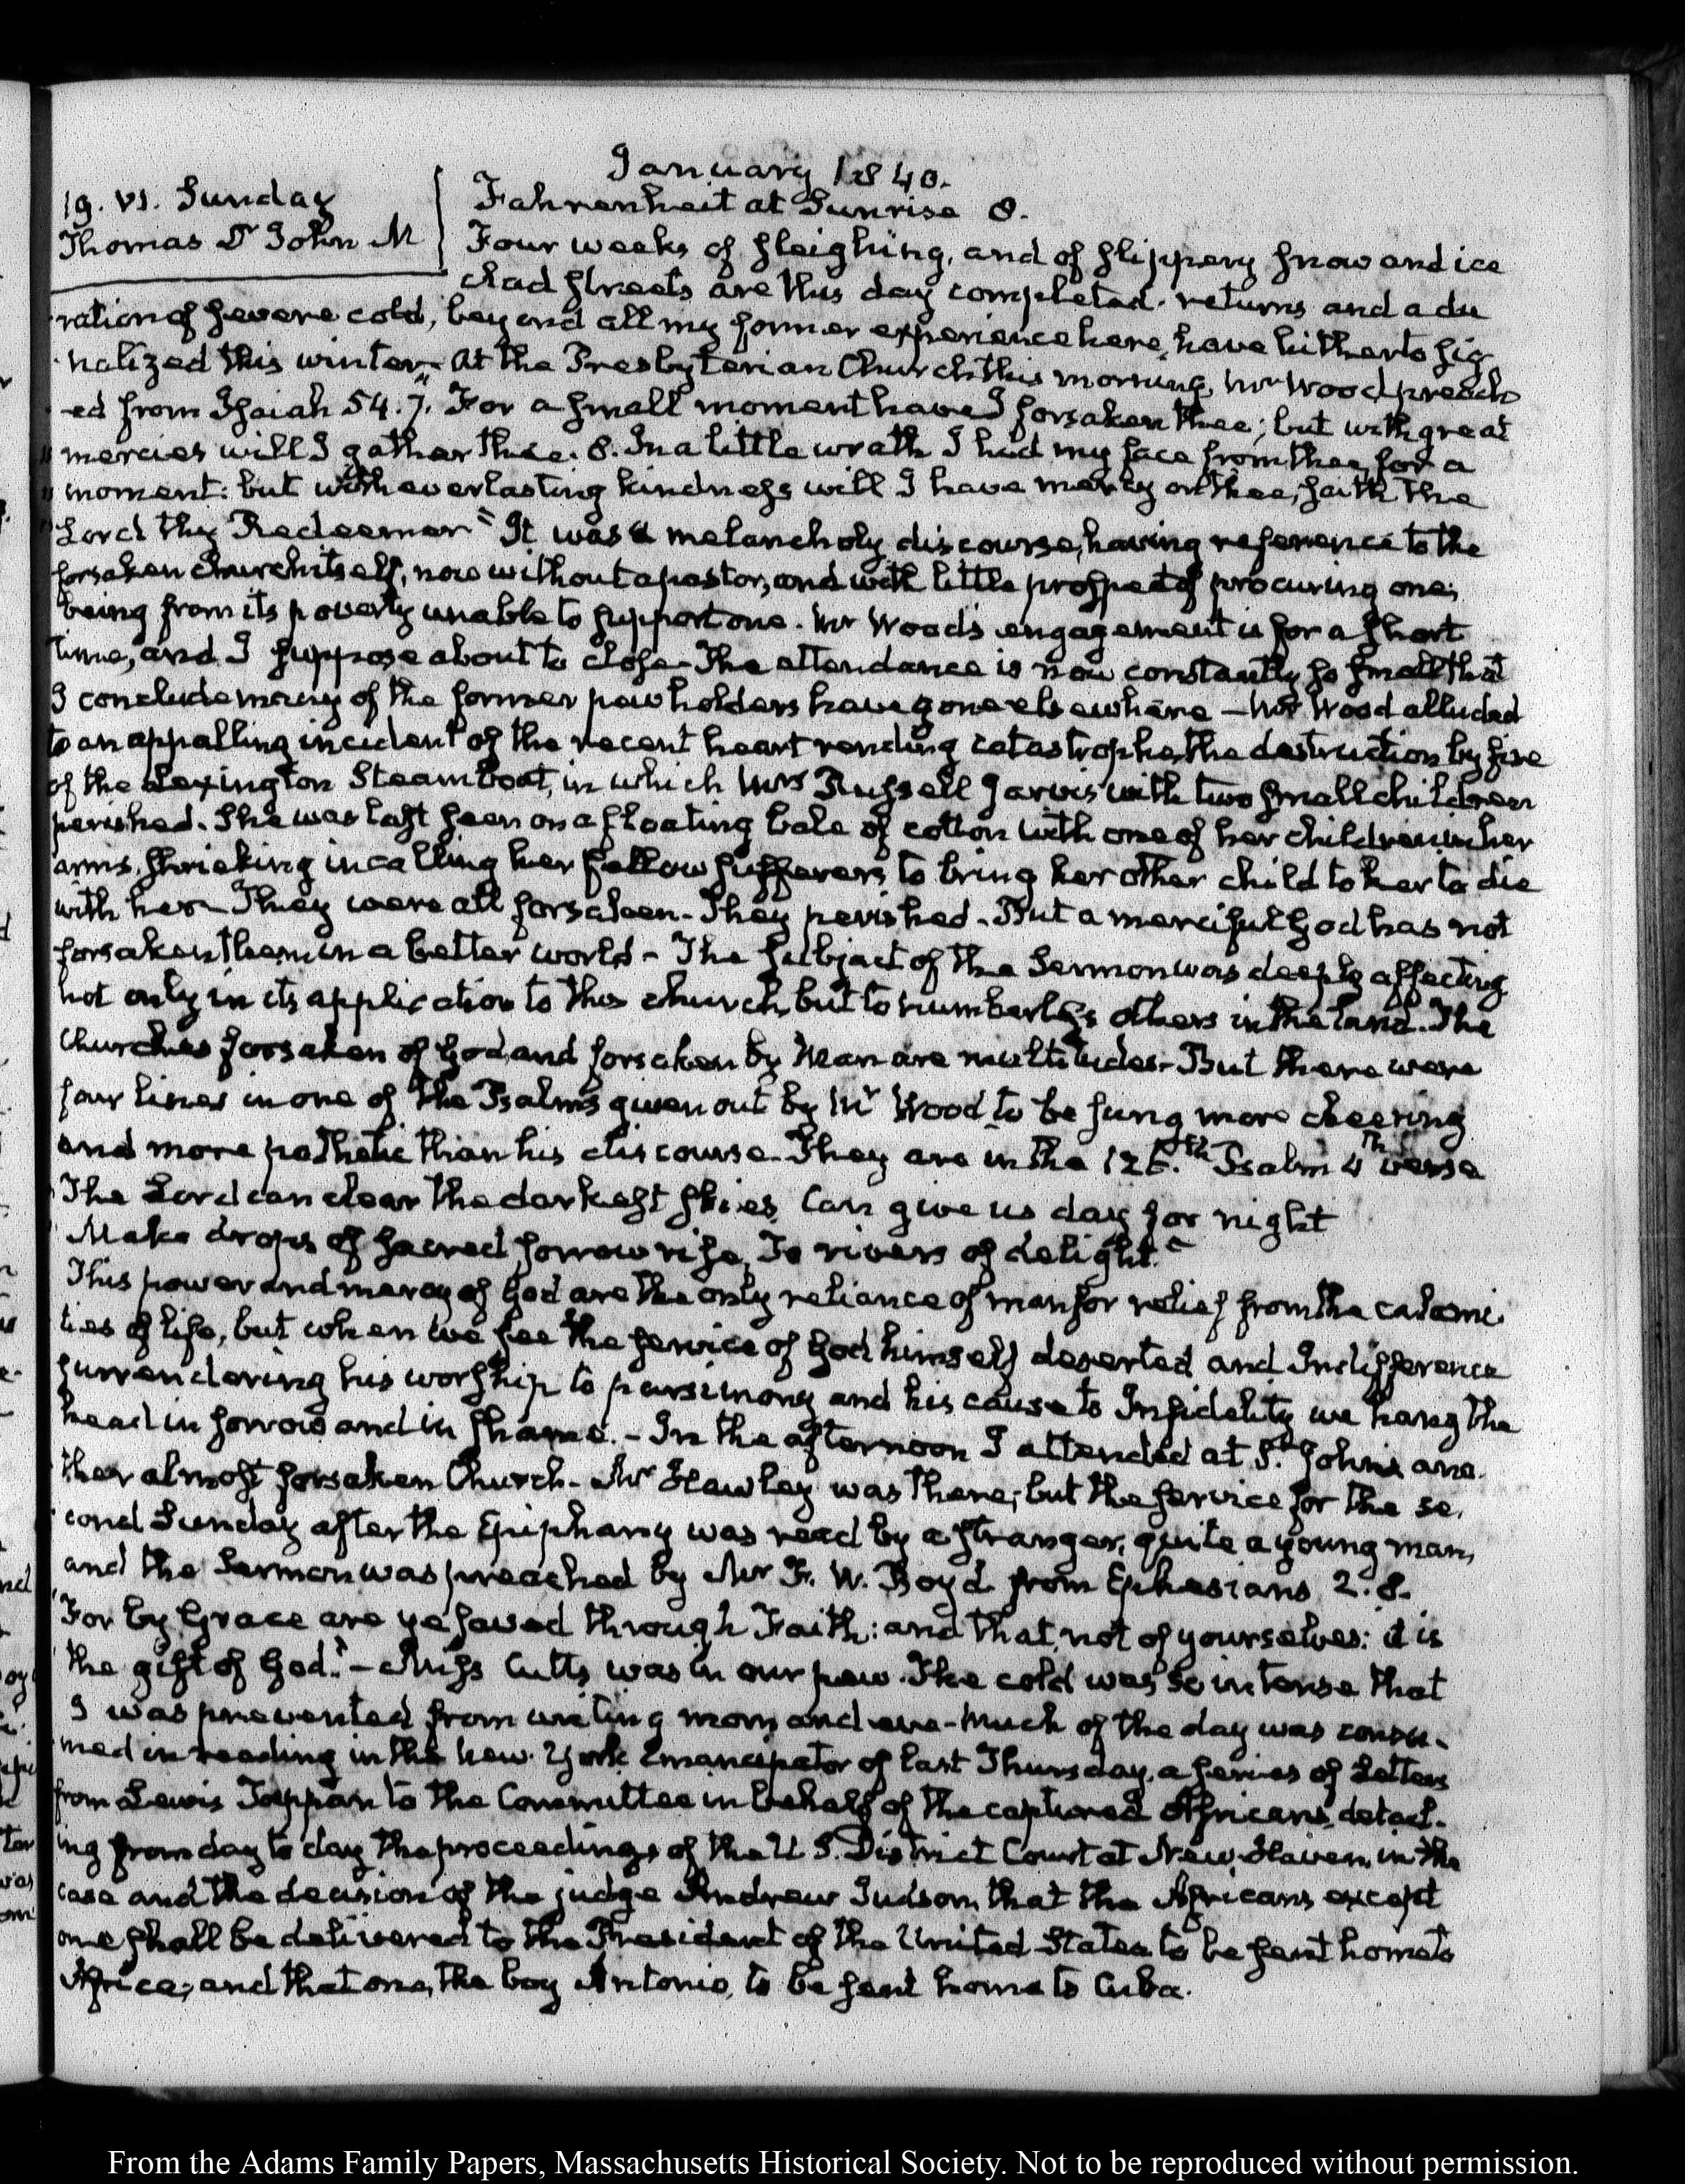 January 1840.
19. VI. Sunday
Thomas Dr John M
Fahrenheit at Sunrise 8.
Four weeks of sleighing, and of slippery snow and ice
clad streets are this day completed. returns and a du
ration of severe cold, beyond all my former experience here, have hitherto sig
nalized this winter. At the Presbyterian Church this morning, Mr Wood preach
-ed from Isaiah 54.7. "For a small moment have I forsaken thee; but with great
"mercies will I gather thee. 8. In a little wrath I hid my face from thee, for a
"moment: but with everlasting kindness will I have mercy on thee, saith the
"Lord thy Redeemer" It was a melancholy discourse, having reference to the
forsaken Church itself, now without a pastor, and with little prospect of procuring one;
being from its poverty unable to support one. Mr Wood's engagement is for a short
time, and I suppose about to close. The attendance is now constantly so small that
I conclude many of the former pew holders have gone elsewhere — Mr Wood alluded
to an appalling incident of the recent heart rending catastrophe, the destruction by fire
of the Lexington Steam boat, in which Mrs Russell Jarvis with two small children
perished. She was last seen on a floating bale of cotton with one of her children in her
arms, shrieking in calling her fellow sufferers to bring her other child to her to die
with her — They were all forsaken - They perished - But a merciful God has not
forsaken them in a better world - The subject of the Sermon was deeply affecting
not only in its application to this church, but to numberless others in the land. The
Churches forsaken of God and forsaken by Man are multitudes - But there were
four lines in one of the Psalms given out by Mr Wood to be sung more cheering
and more pathetic than his discourse. They are in the 126.th Psalm 4th verse
The Lord can clear the darkest skies, Can give us day for night
Make drops of sacred sorrow rise, To rivers of delight."
This power and mercy of God are the only reliance of man for relief from the calami
ties of life, but when we see the service of God himself deserted and Indifference
surrendering his worship to parsimony and his cause to Infidelity we hang the
head in sorrow and in shame. - In the afternoon I attended at St. John's ano-
ther almost forsaken Church - Mr Hawley was there; but the service for the se,
cond Sunday after the Epiphany was read by a stranger, quite a young man,
and the Sermon was preached by Mr F. W. Boyd from Ephesians 2.8.
"For by Grace are ye saved through Faith: and that not of yourselves: it is
"the gift of God." - Miss Cutts was in our pew. The cold was so intense that
I was prevented from writing morn and eve - Much of the day was consu-
med in reading in the New York Emancipator of last Thursday, a series of Letters
from Lewis Tappan to the Committee in behalf of the captured Africans, detail-
ing from day to day the proceedings of the U. S. District Court at New Haven, in the
case and the decision of the judge Andrew Judson, that the Africans except
one shall be delivered to the President of the United States to be sent home to
Africa; and that one, the boy Antonio, to be sent home to Cuba.
From the Adams Family Papers, Massachusetts Historical Society. Not to be reproduced without permission.